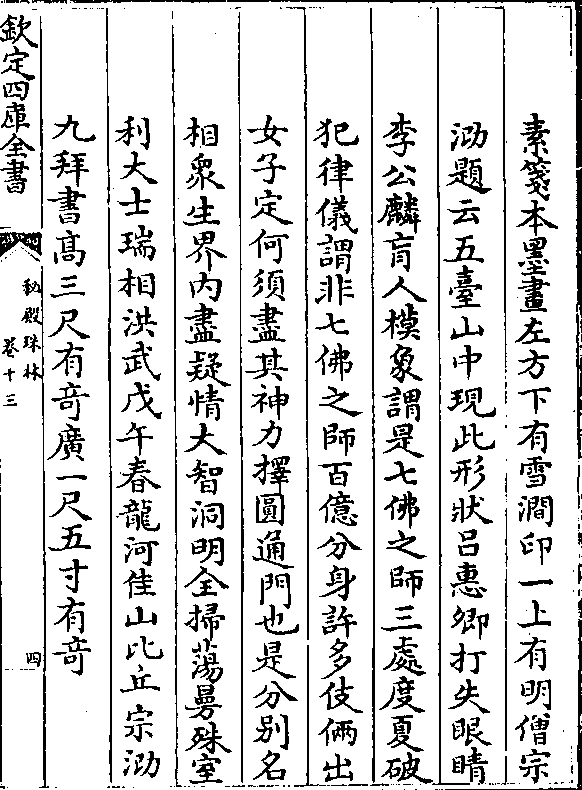 素箋本墨畫左方下有雪澗印一上有明僧宗
泐題云五臺山中現此形狀吕惠卿打失眼睛
李公麟盲人模象謂是七佛之師三處度夏破
犯律儀謂非七佛之師百億分身許多伎倆出
女子定何須盡其神力擇圓通門也是分别名
相衆生界内盡疑情大智洞明全掃蕩曼殊室
利大士瑞相洪武戊午春龍河住山比丘宗泐
九拜書髙三尺有竒廣一尺五寸有竒
欽定四庫全書
秘殿珠林
卷十三
四